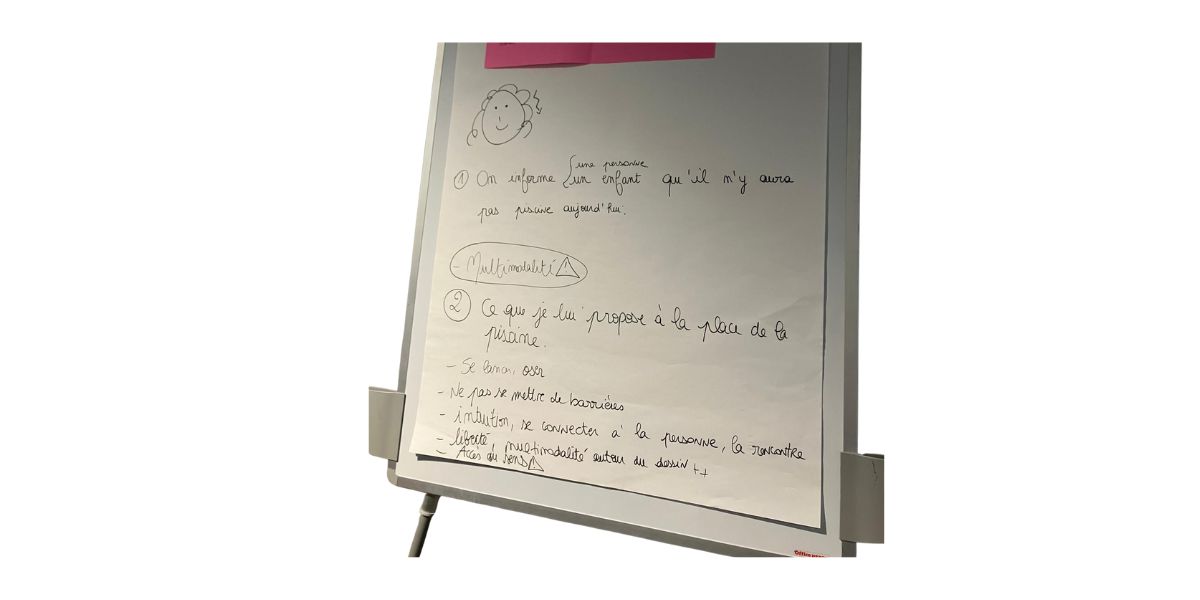 une personne
① On informe { un enfant qu'il n'y aura
pas piscine aujourd'hui.
- Multimodalité ⚠
② Ce que je lui propose à la place de la
piscine.
- Se lancer, oser
- Ne pas se mettre de barrières
- intuition, se connecter à la personne, la rencontre
- liberté, multimodalité autour du dessin ++
- Accès au sens ⚠